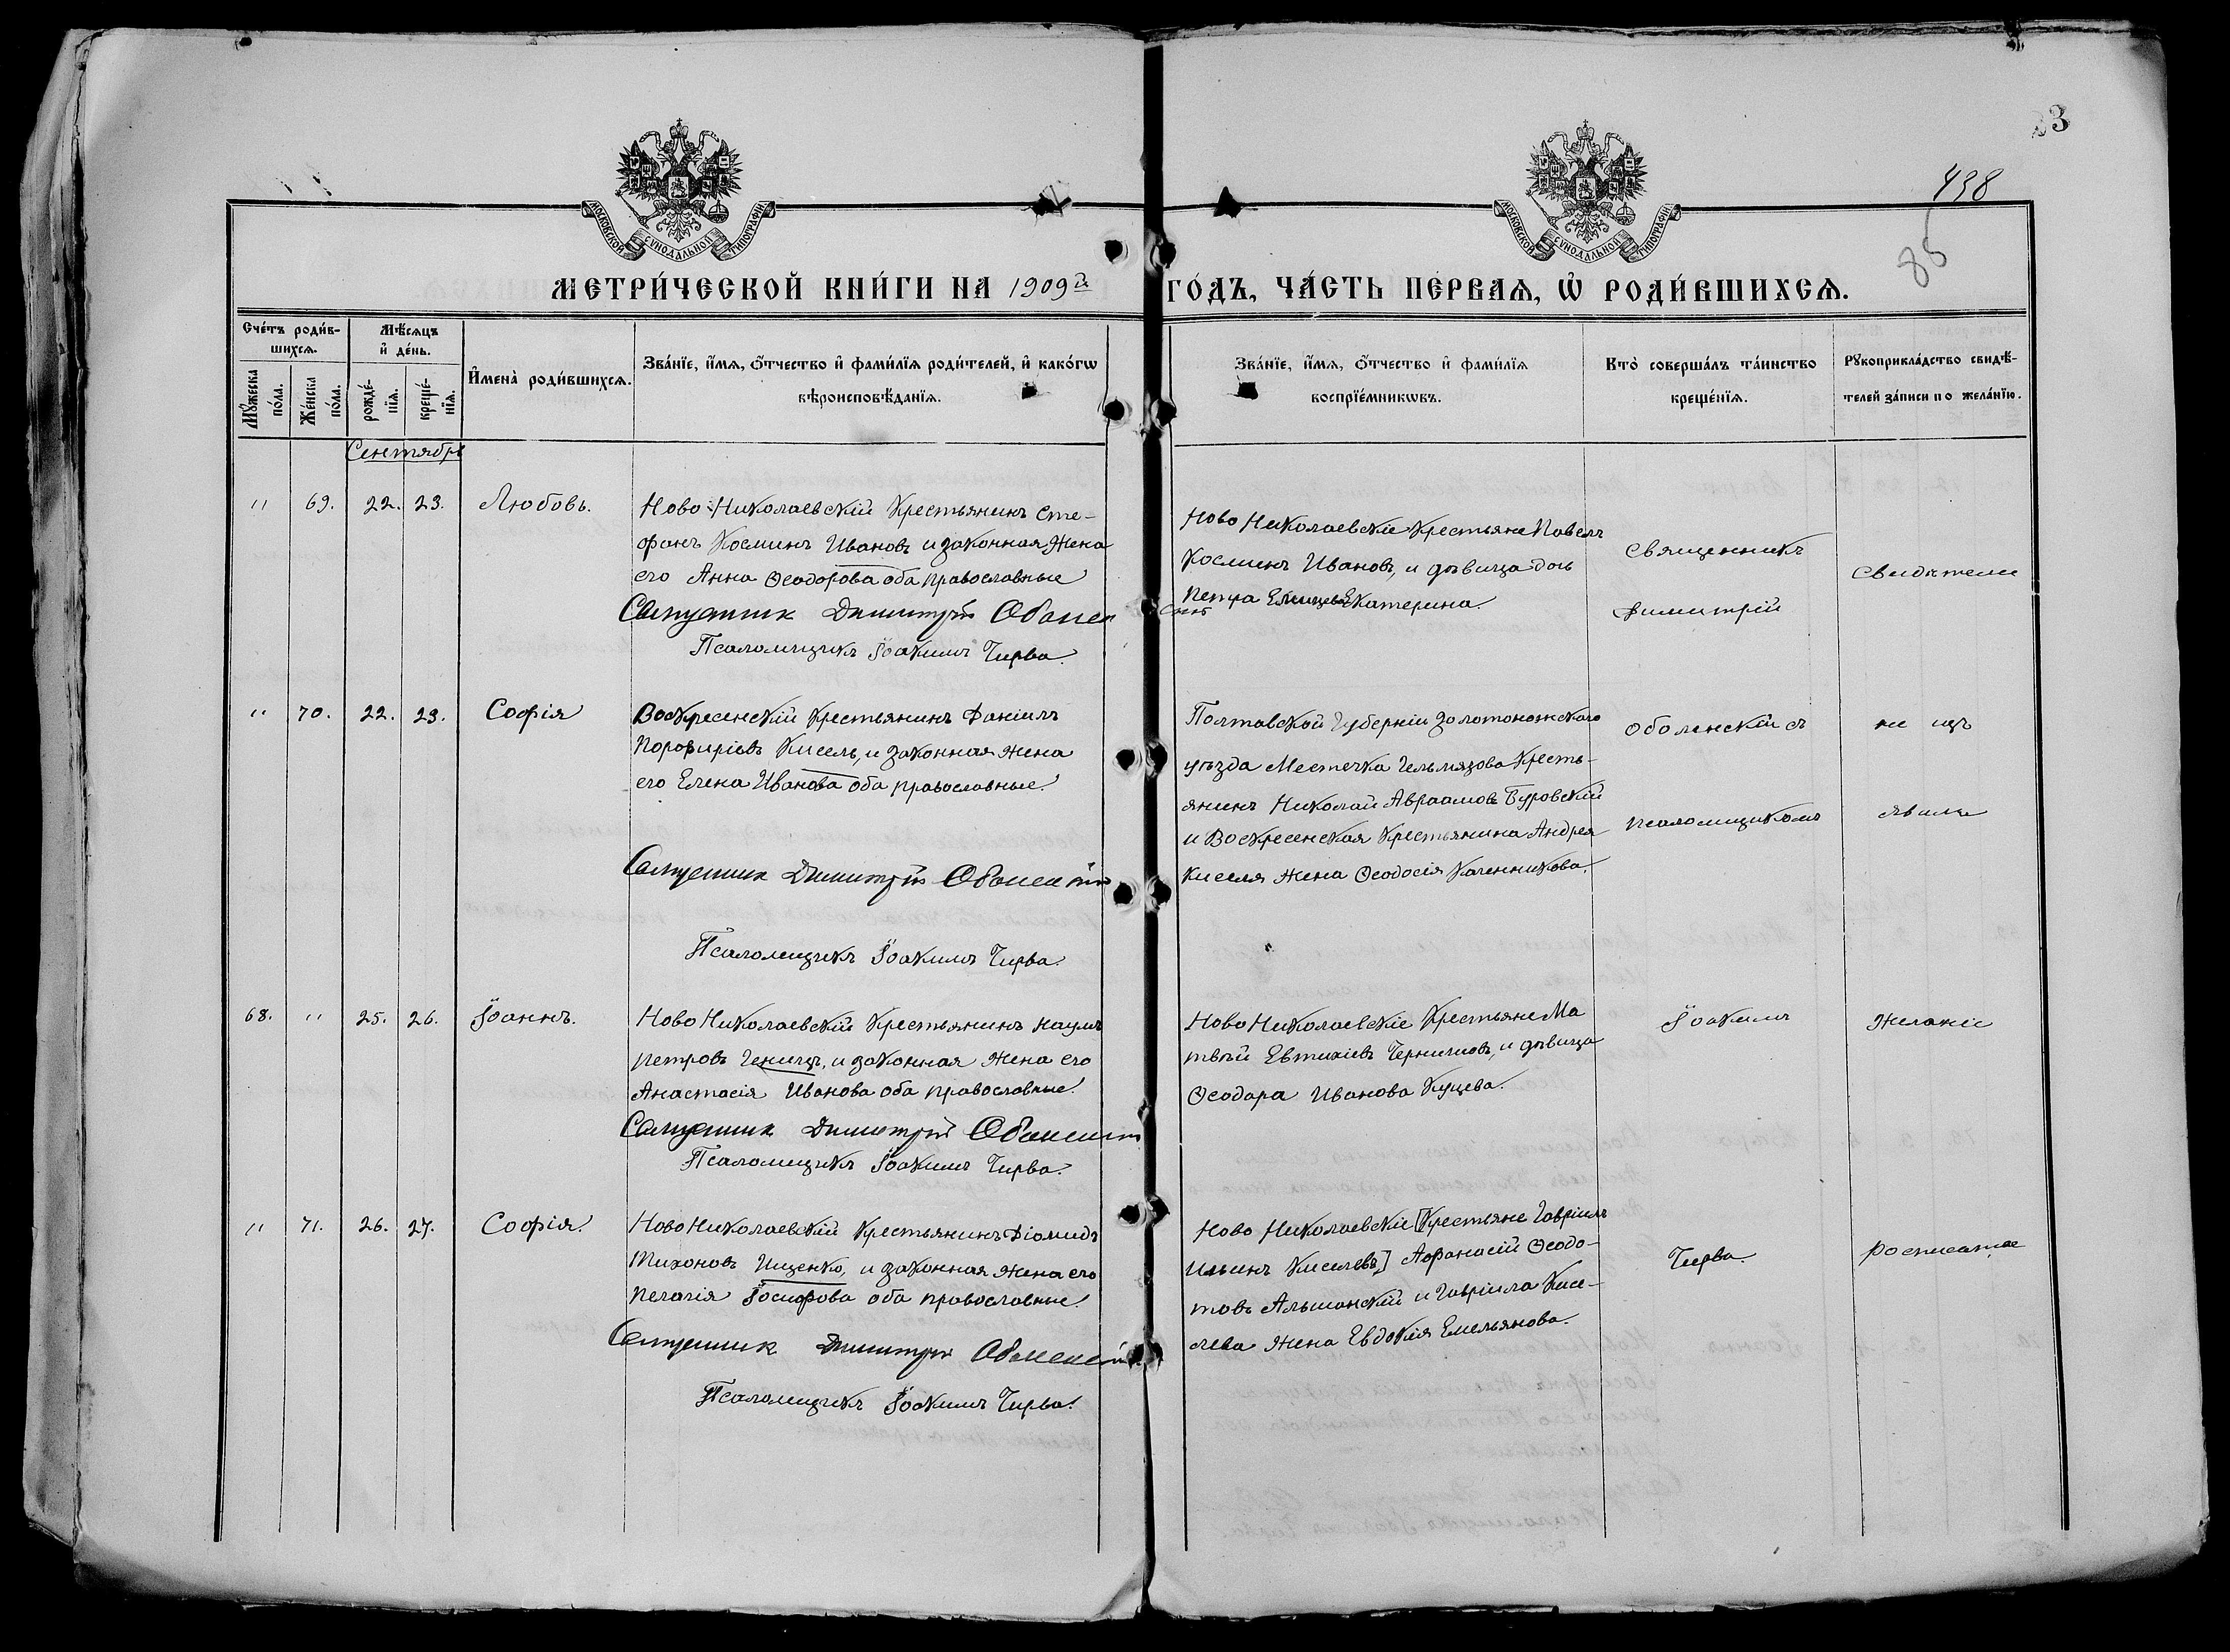 438
85
МОСКОВСКОЙ СѴНОДАЛЬНОЙ ТИПОГРАФІИ
МОСКОВСКОЙ СѴНОДАЛЬНОЙ ТИПОГРАФІИ
МЕТРИ́ЧЕСКОЙ КНИ́ГИ НА 1909й ГО́ДЪ, ЧА́СТЬ ПЕ́РВАѦ, Ѡ РОДИ́ВШИХСѦ.
Сче́тъ роди́вшихсѧ.
Мꙋ́жеска по́ла.
Же́нска по́ла.
Мѣ́сѧцъ и҆ де́нь.
рожде́нїѧ.
креще́нїѧ.
И҆мена̀ роди́вшихсѧ.
Зва́нїе, и҆́мѧ, ѻ҆́тчество и҆ фами́лїѧ роди́телей, и҆ како́гѡ
вѣроисповѣ́данїѧ.
Зва́нїе, и҆́мѧ, ѻ҆́тчество и҆ фами́лїѧ
воспрїе́мникѡвъ.
Кто̀ соверша́лъ та́инство
креще́нїѧ.
Рꙋкоприкла́дство свидѣ́-
телей за́писи по жела́нїю.
Сентябрь
" 69. 22. 23. Любовь.
Ново-Николаевскій Крестьянинъ Сте-
фанъ Косминъ Ивановъ и законная жена
его Анна Ѳеодорова оба православные
Священникъ Димитрій Оболенскій
Псаломщикъ Іоакимъ Чирва.
Ново Николаевскіе Крестьяне Павелъ
Косминъ Ивановъ, и дѣвица дочь
Петра Екатерина.
" 70. 22. 23. Софія
Воскресенскій Крестьянинъ Даніилъ
Порфиріевъ Кисель, и законная жена
его Елена Иванова оба православные.
Священникъ Димитрій Оболенскій
Псаломщикъ Іоакимъ Чирва.
Полтавской Губерніи Золотоношскаго
уѣзда Местечка Гельмязова Кресть-
янинъ Николай Авраамовъ Буровскій
и Воскресенская Крестьянина Андрея
Киселя жена Ѳеодосія Каленникова.
68. " 25. 26. Іоаннъ.
Ново Николаевскій Крестьянинъ Наумъ
Петровъ и законная жена его
Анастасія Иванова оба православные.
Священникъ Димитрій Оболенскій
Псаломщикъ Іоакимъ Чирва.
Ново Николаевскіе Крестьяне Ма
твѣй Евтихіевъ и дѣвица
Ѳеодора Иванова Куцева.
" 71. 26. 27. Софія.
Ново Николаевскій Крестьянинъ Діомидъ
Тихоновъ Ищенко, и законная жена его
Пелагія Іосифова оба православные.
Священникъ Димитрій Оболенскій
Псаломщикъ Іоакимъ Чирва.
Ново Николаевскіе [Крестьяне Гавріилъ
Ильинъ Киселевъ,] Афанасій Ѳеодо-
товъ Альшанскій и Гавріила Кисе-
лева жена Евдокія Емельянова.
Священникъ
Димитрій
Оболенскій съ
псаломщикомъ
Іоакимъ
Чирва.
Свидѣтели
не изъ
явили
желаніе
росписатся